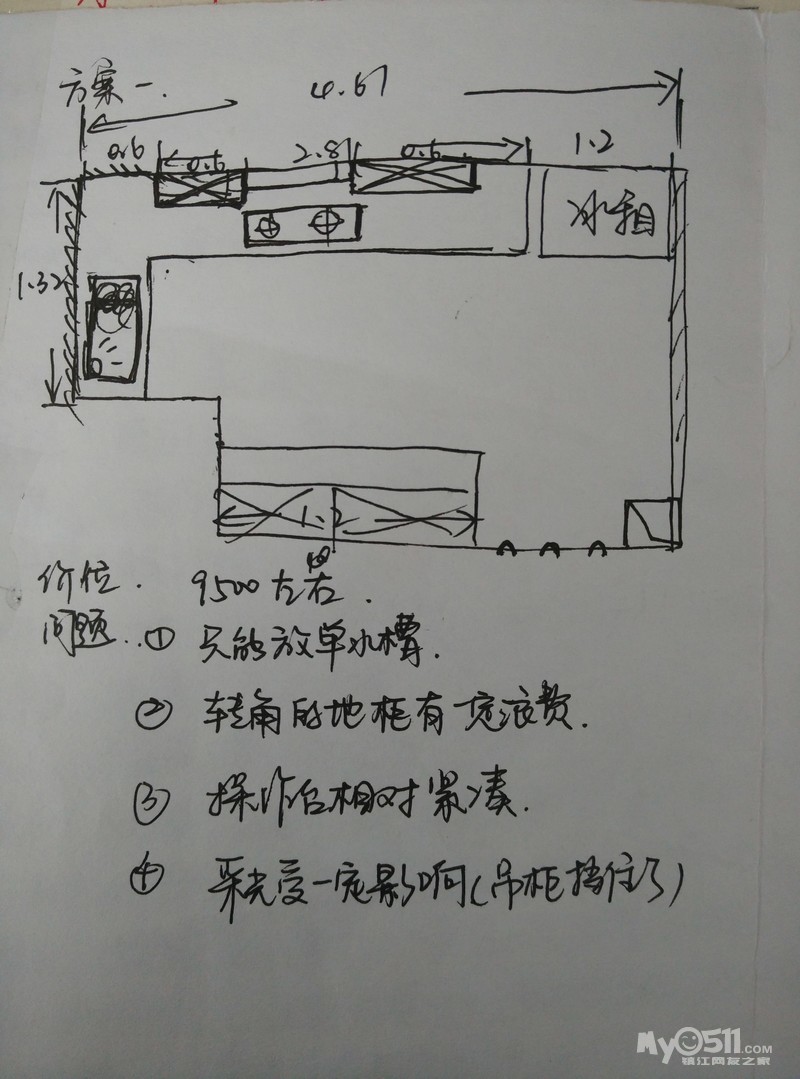 方案一.
4.67
0.6 0.6 2.87 0.6 1.2
冰箱
1.32
1.2
价位. 9500左右.
问题. ① 只能放单水槽.
② 转角的地柜有一定浪费.
③ 操作台相对紧凑.
④ 采光受一定影响(吊柜挡住了)
My0511.COM
镇江网友之家